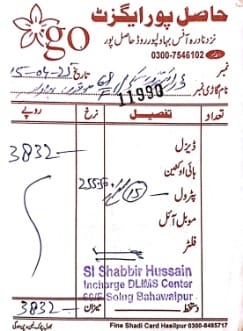 حاصل پور ایگزٹ
go
نزد نادرہ آفس بہاولپور روڈ حاصل پور
0300-7546102
تاریخ 15-04-25
نام گاڑی نمبر
نمبر
11990
تعداد تفصیل نرخ روپے
ڈیزل
3832
ہائی اوکٹین
پٹرول 15 255.50
موبل آئل
فلٹر
SI Shabbir Hussain
Incharge DLIMS Center
Bahawalpur
3832 میزان دستخط
Fine Shadi Card Hasilpur 0300-8495717